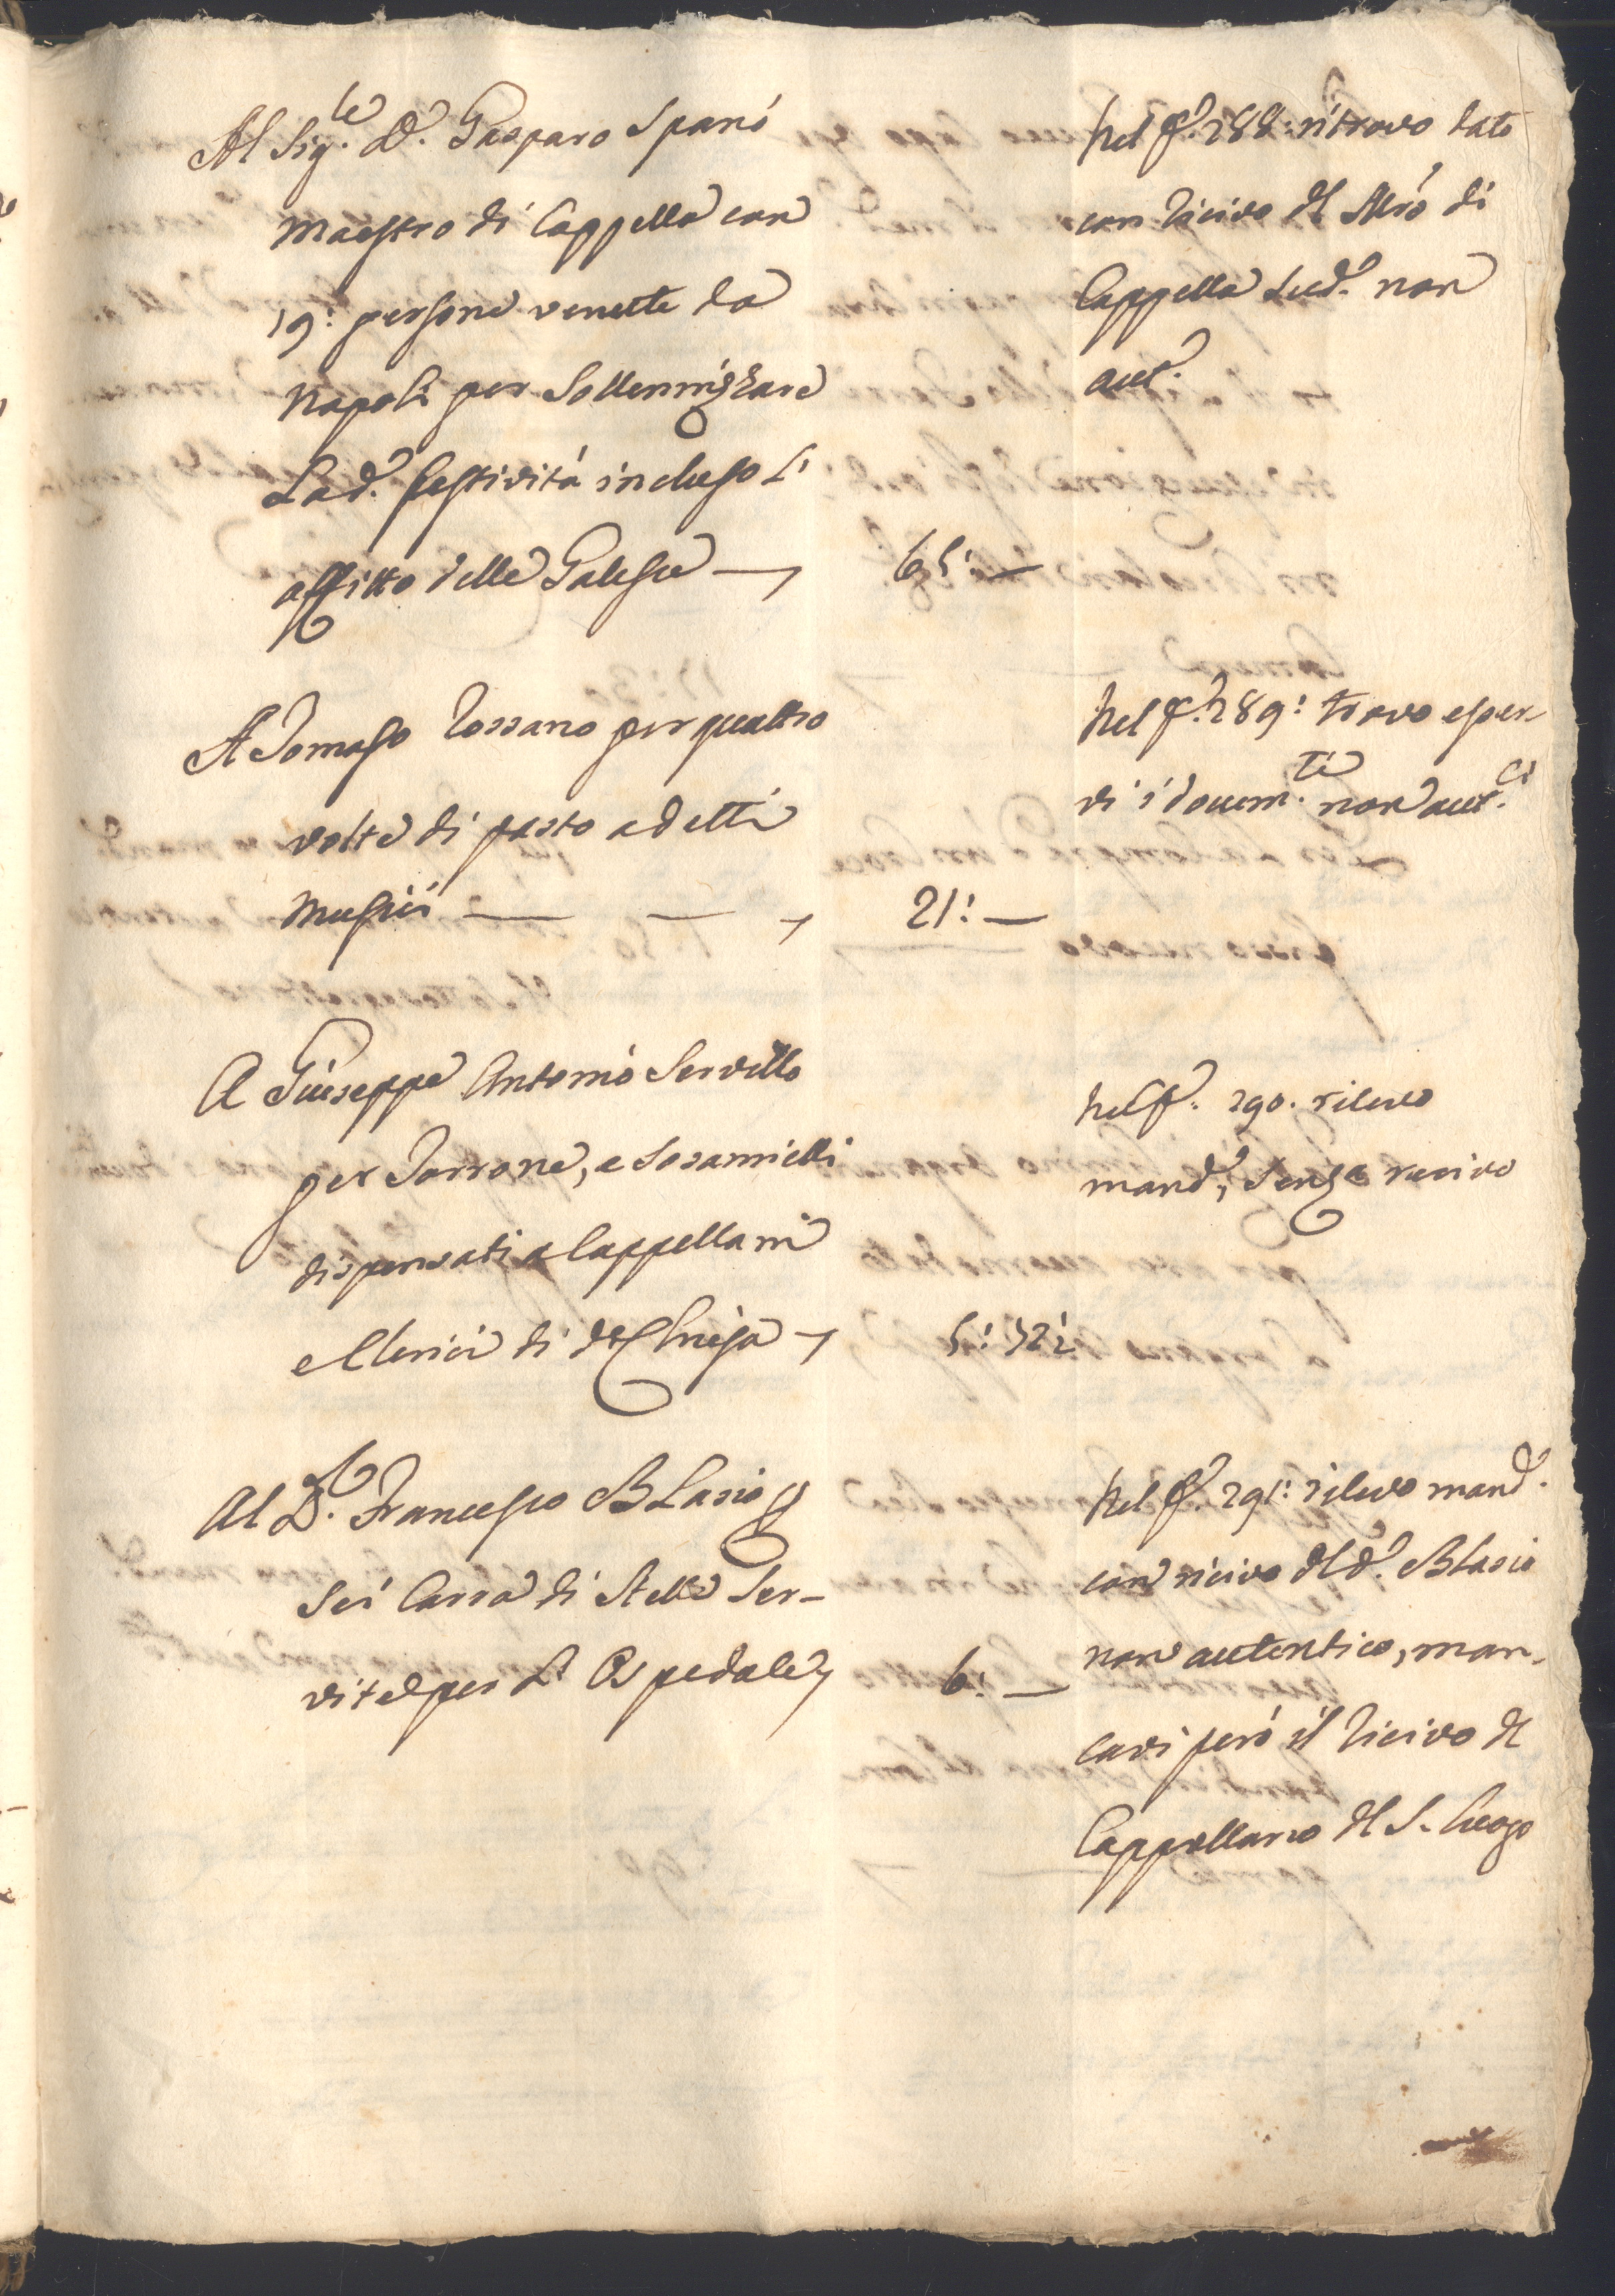 Al Sig.le D. Gasparo Spanó
Maestro di Cappella con
19: persone venette da
Napoli per Sollennizzare
La d.a festività incluso l'
affitto delle Galesse — 65:—
Nel f.o 288: ritrovo dato
con ricivo del Mro di
Cappella Sud.o non
aut.o
A Tomaso Rossano per quattro
volte di pasto a detti
Musici — — 21:—
Nel f.o 289: trovo esser-
vi i docum.ti non aut.ci
A Giuseppe Antonio Servillo
per Torrone, e Sosamielli
dispensati a Cappellani
e Clerici di d.a Chiesa — 5: 52½
Nel f.o 290. rilevo
mand.o, Senza recivo
Al D.r Francesco BLasio p
Sei Carra di Stelle Ser-
vite per L'Ospedale 6:—
Nel f.o 291: rilevo mand.o
con ricivo del d.o BLasio
non autentico, man-
cavi peró il ricivo del
Cappellano del S. Luogo